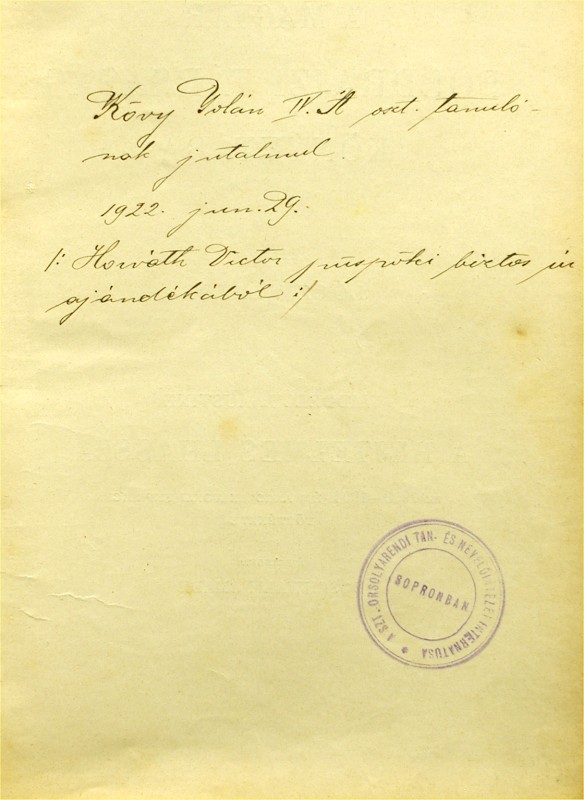 Kövy Yolán IV. A oszt. tanuló-
nak jutalmul.
1922. jun. 29.
/: Horváth Victor püspöki biztos úr
ajándékából :/
A SZT.-ORSOLYARENDI TAN- ÉS NEVELŐINTÉZET INTERNATUSA
SOPRONBAN